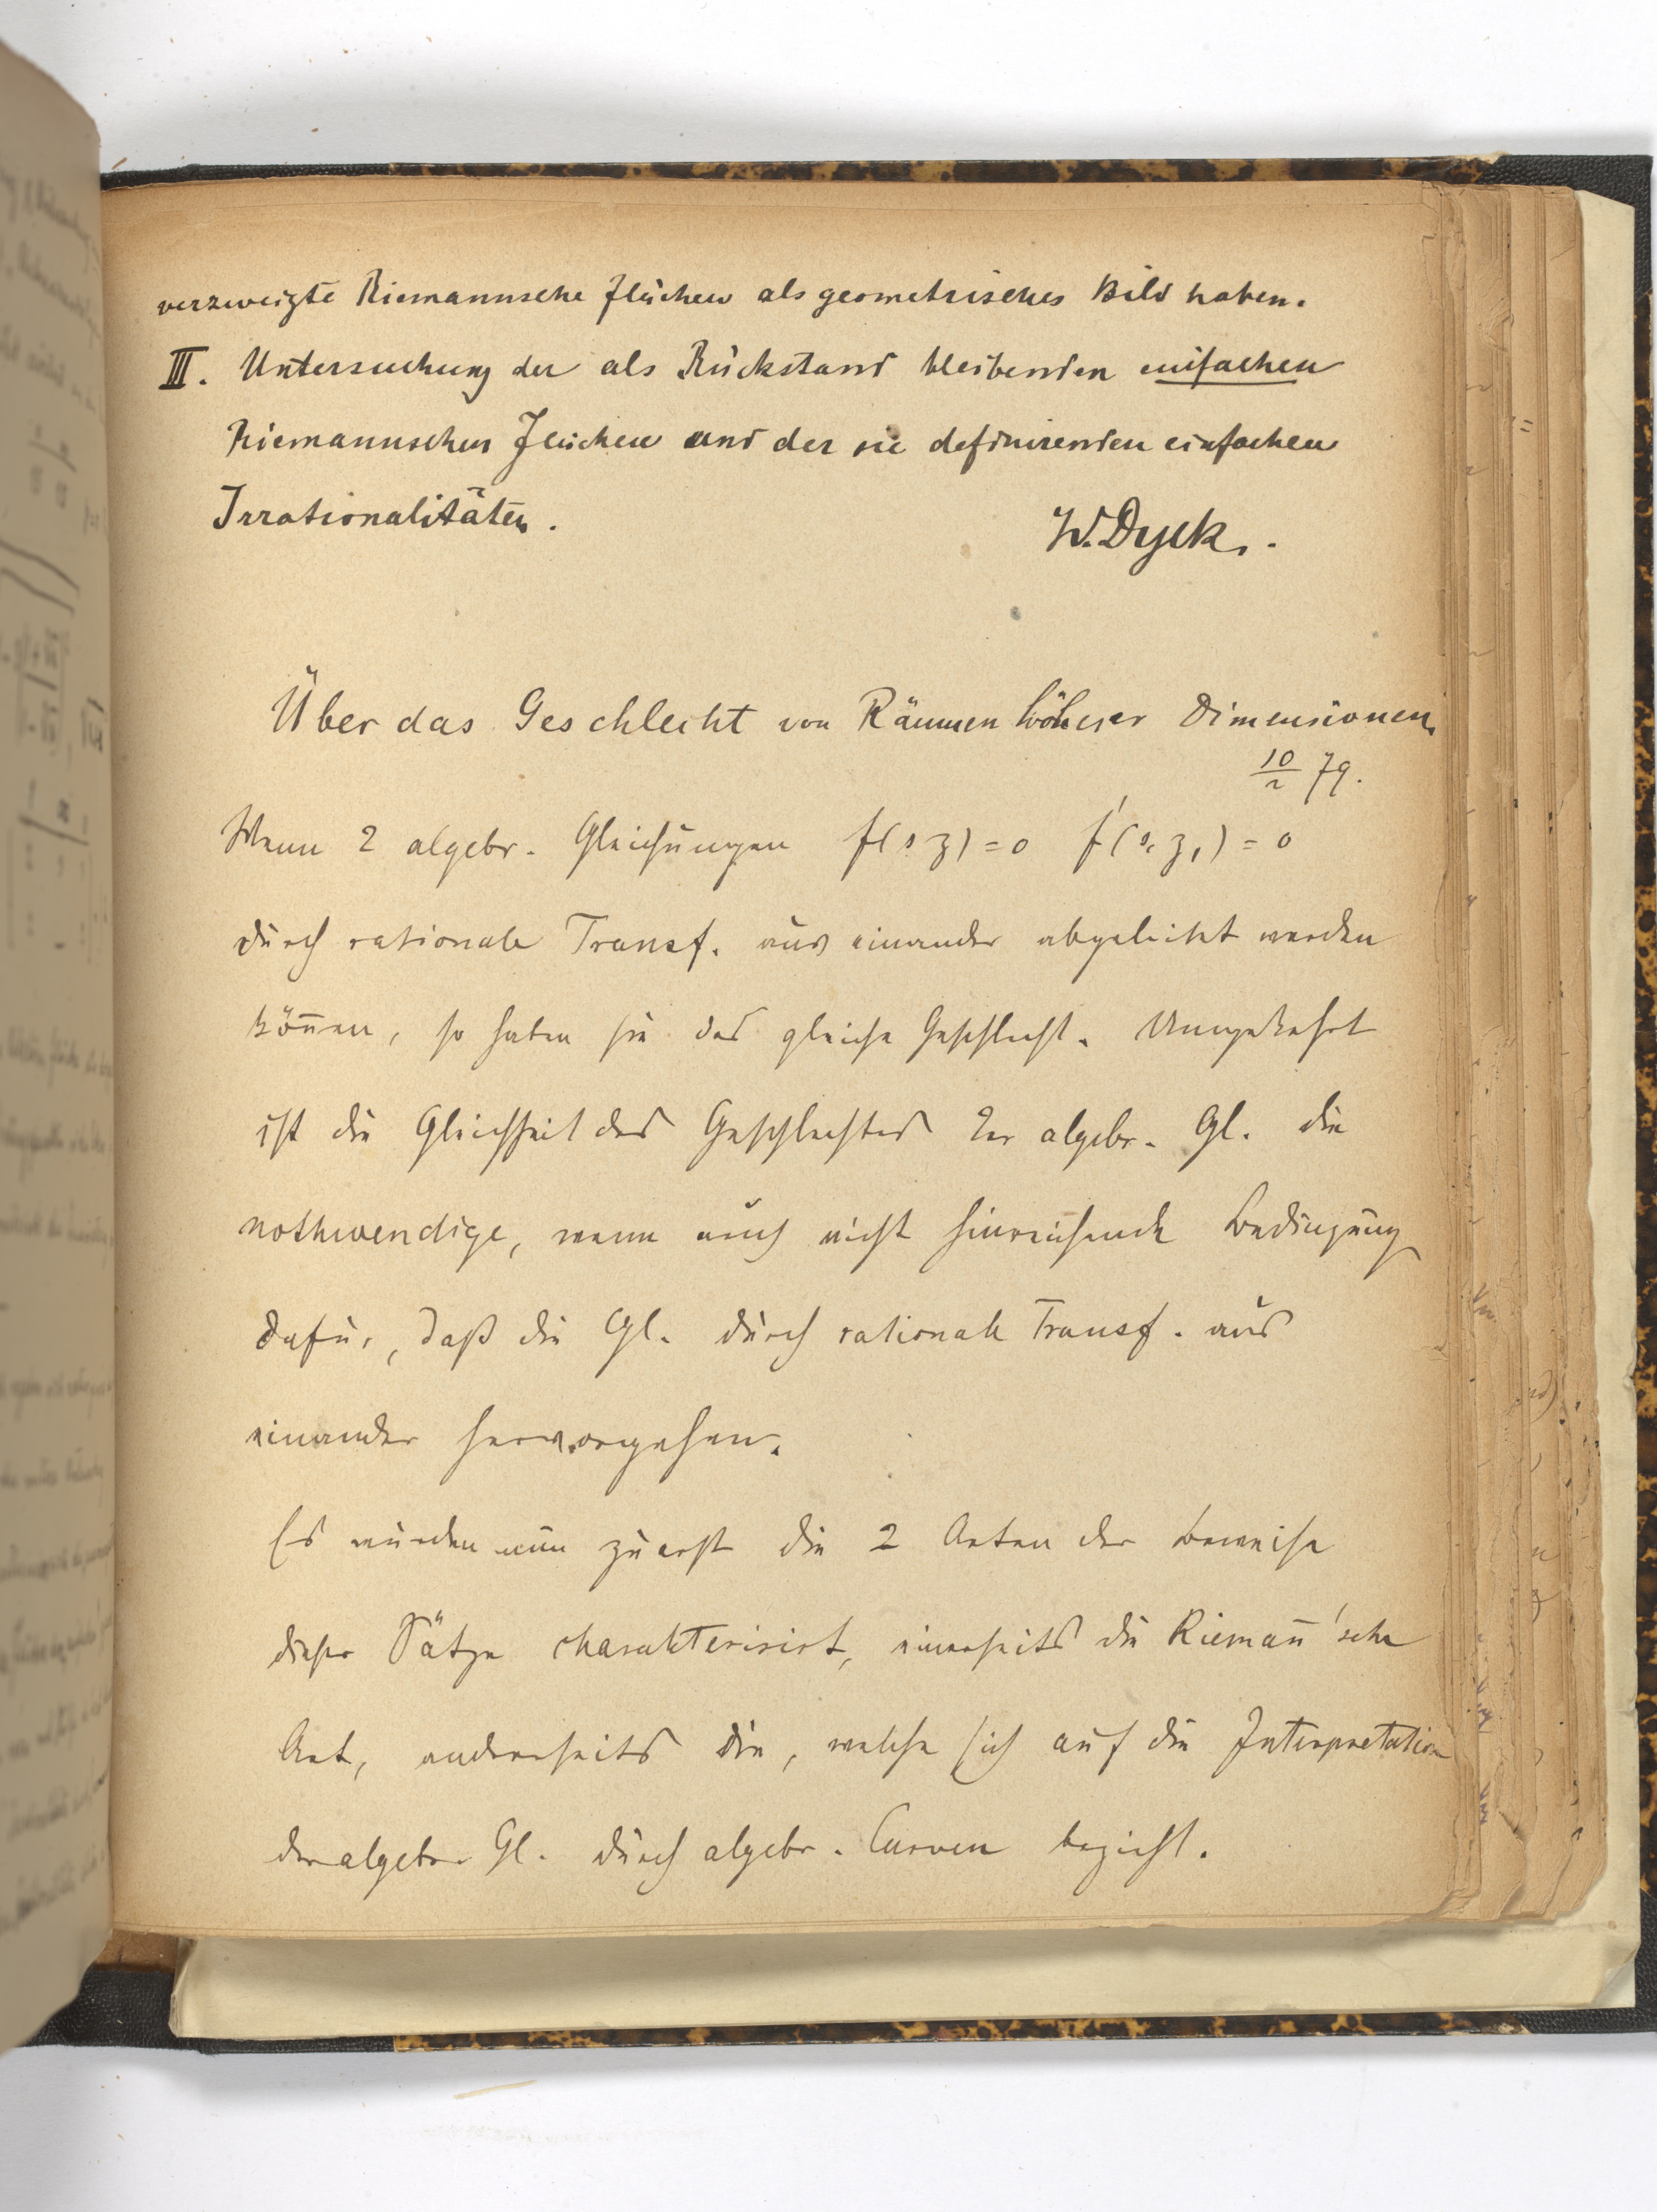 verzweigte Riemannsche Flächen als geometrisches Bild haben.
III. Untersuchung der als Rückstand bleibenden einfachen
Riemannschen Flächen und der sie definirenden einfachen
Irrationalitäten.
W. Dyck.
Über das Geschlecht von Räumen höherer Dimensionen
10/2 79.
Wenn 2 algebr. Gleichungen f(s z) = 0 f'(s, z,) = 0
durch rationale Transf. aus einander abgeleitet werden
kön̅en, so haben sie das gleiche Geschlecht. Umgekehrt
ist die Gleichheit des Geschlechtes 2er algebr. Gl. die
nothwendige, wenn auch nicht hinreichende Bedingung
dafür, daß die Gl. durch rationale Transf. aus
einander hervorgehen.
Es wurden nun zuerst die 2 Arten der Beweise
dieser Sätze charakterisirt, einerseits die Rieman̅'sche
Art, anderseits die, welche sich auf die Interpretation
der algebr. Gl. durch algebr. Curven bezieht.